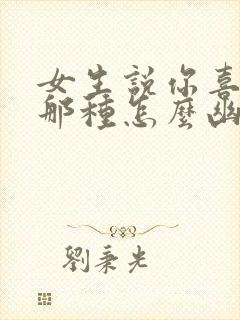 女生說你喜
那種怎麼幽
劉秉光